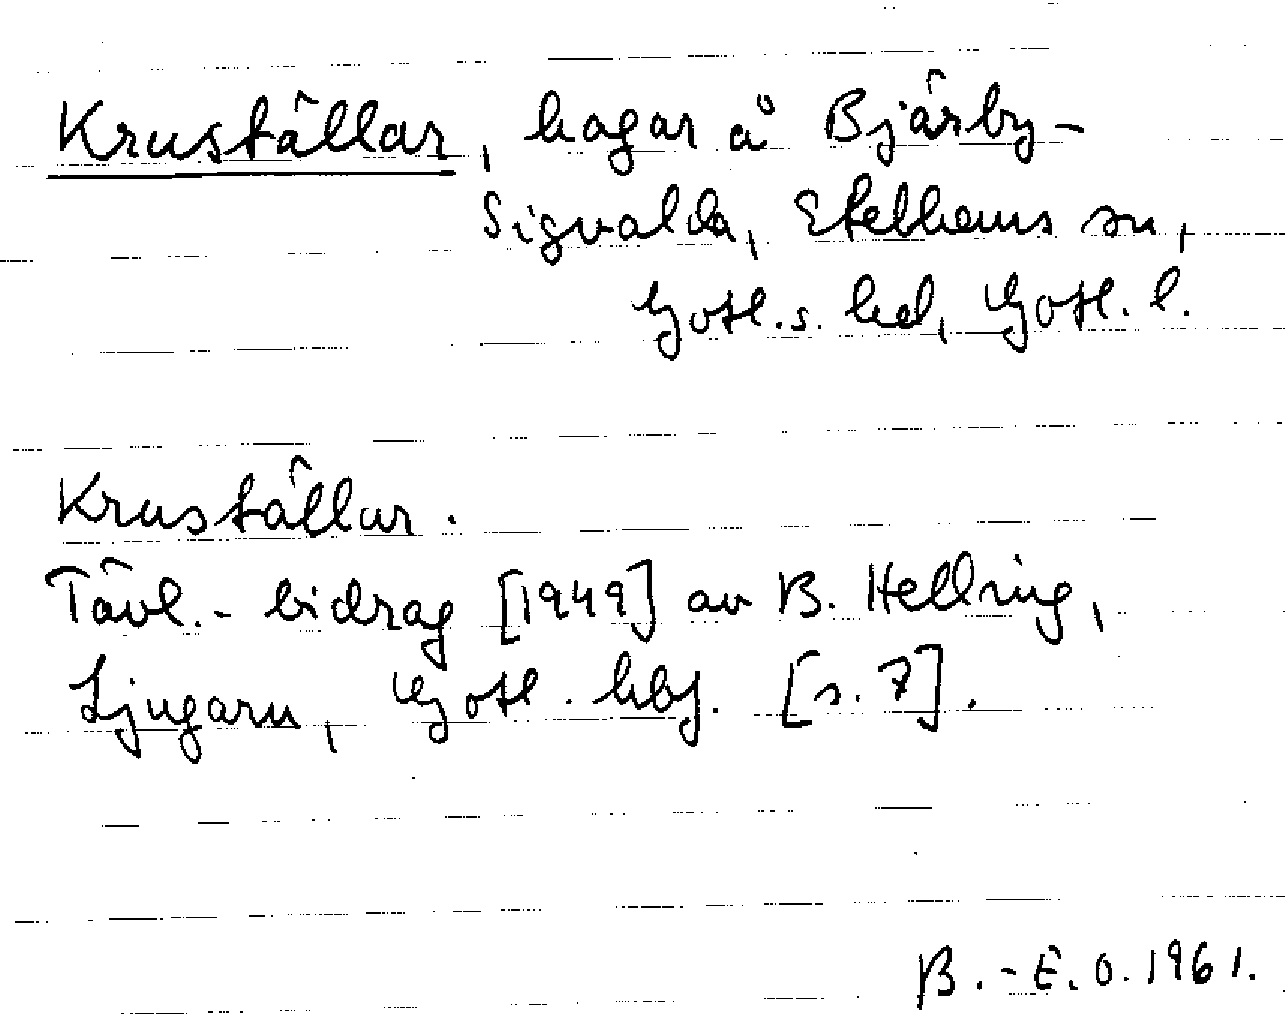 Kruställar, hagar å Bjärby-
Sigvalda, Etelhems sn,
Gotl.s. hd, Gotl. l.
Kruställar.
Tävl.-bidrag [1949] av B. Hellring,
Ljugarn, Gotl. hbf. [s. 7].
B.-E.O. 1961.